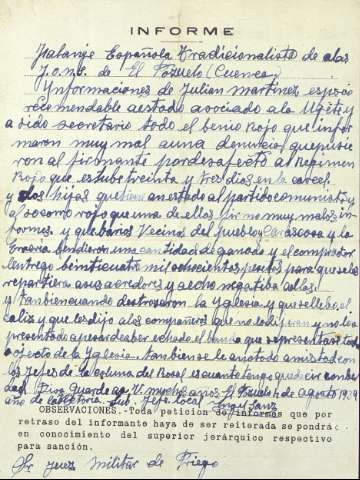 INFORME
Falange Española Tradicionalista de alas
J.O.N.S. de El Pozuelo (Cuenca)
Ynformaciones de Julian Martinez es poco
recomendable a estado asociado ala Ugite y
a sido secretario todo el benio Rojo que infor
maron muy mal a una denuncia que pusie
ron al firmante por desafecto al Regimen
Rojo que estube treinta y tres dias en la carcel
y dos hijas que an estado al partido comunista y
al socorro rojo que una de ellas firmo muy malos in
formes y que barios Vecinos del pueblo Carrascosa y la
bendieron una cantidad de ganado y el comprador
lentrego beinticuatro mil ochocientas pesetas para que se las
repartiera asus acredores y a echo negatiba ellas
y tanbien cuando destroyeron la Yglesia y que se llebo el
caliz y que les dijo alos compañeros que no lo dijeran y no lo a
presentado apesar de aber echado el bando que se presentara todo
ojecto de la Yglesia tanbien se le a notado amistad con
los Jefes de la coluna del Rosal es cuanto tengo que decir en ber
dad. Dios Guarde a V. muchos años El Pozuelo 4 de Agosto 1939
año de la Bitoria Sub. Jefe. local Angel Sanz
OBSERVACIONES.-Toda peticion de informes que por
retraso del informante haya de ser reiterada se pondrá
en conocimiento del superior jerárquico respectivo
para sanción.
Sr Juez Militar de Priego